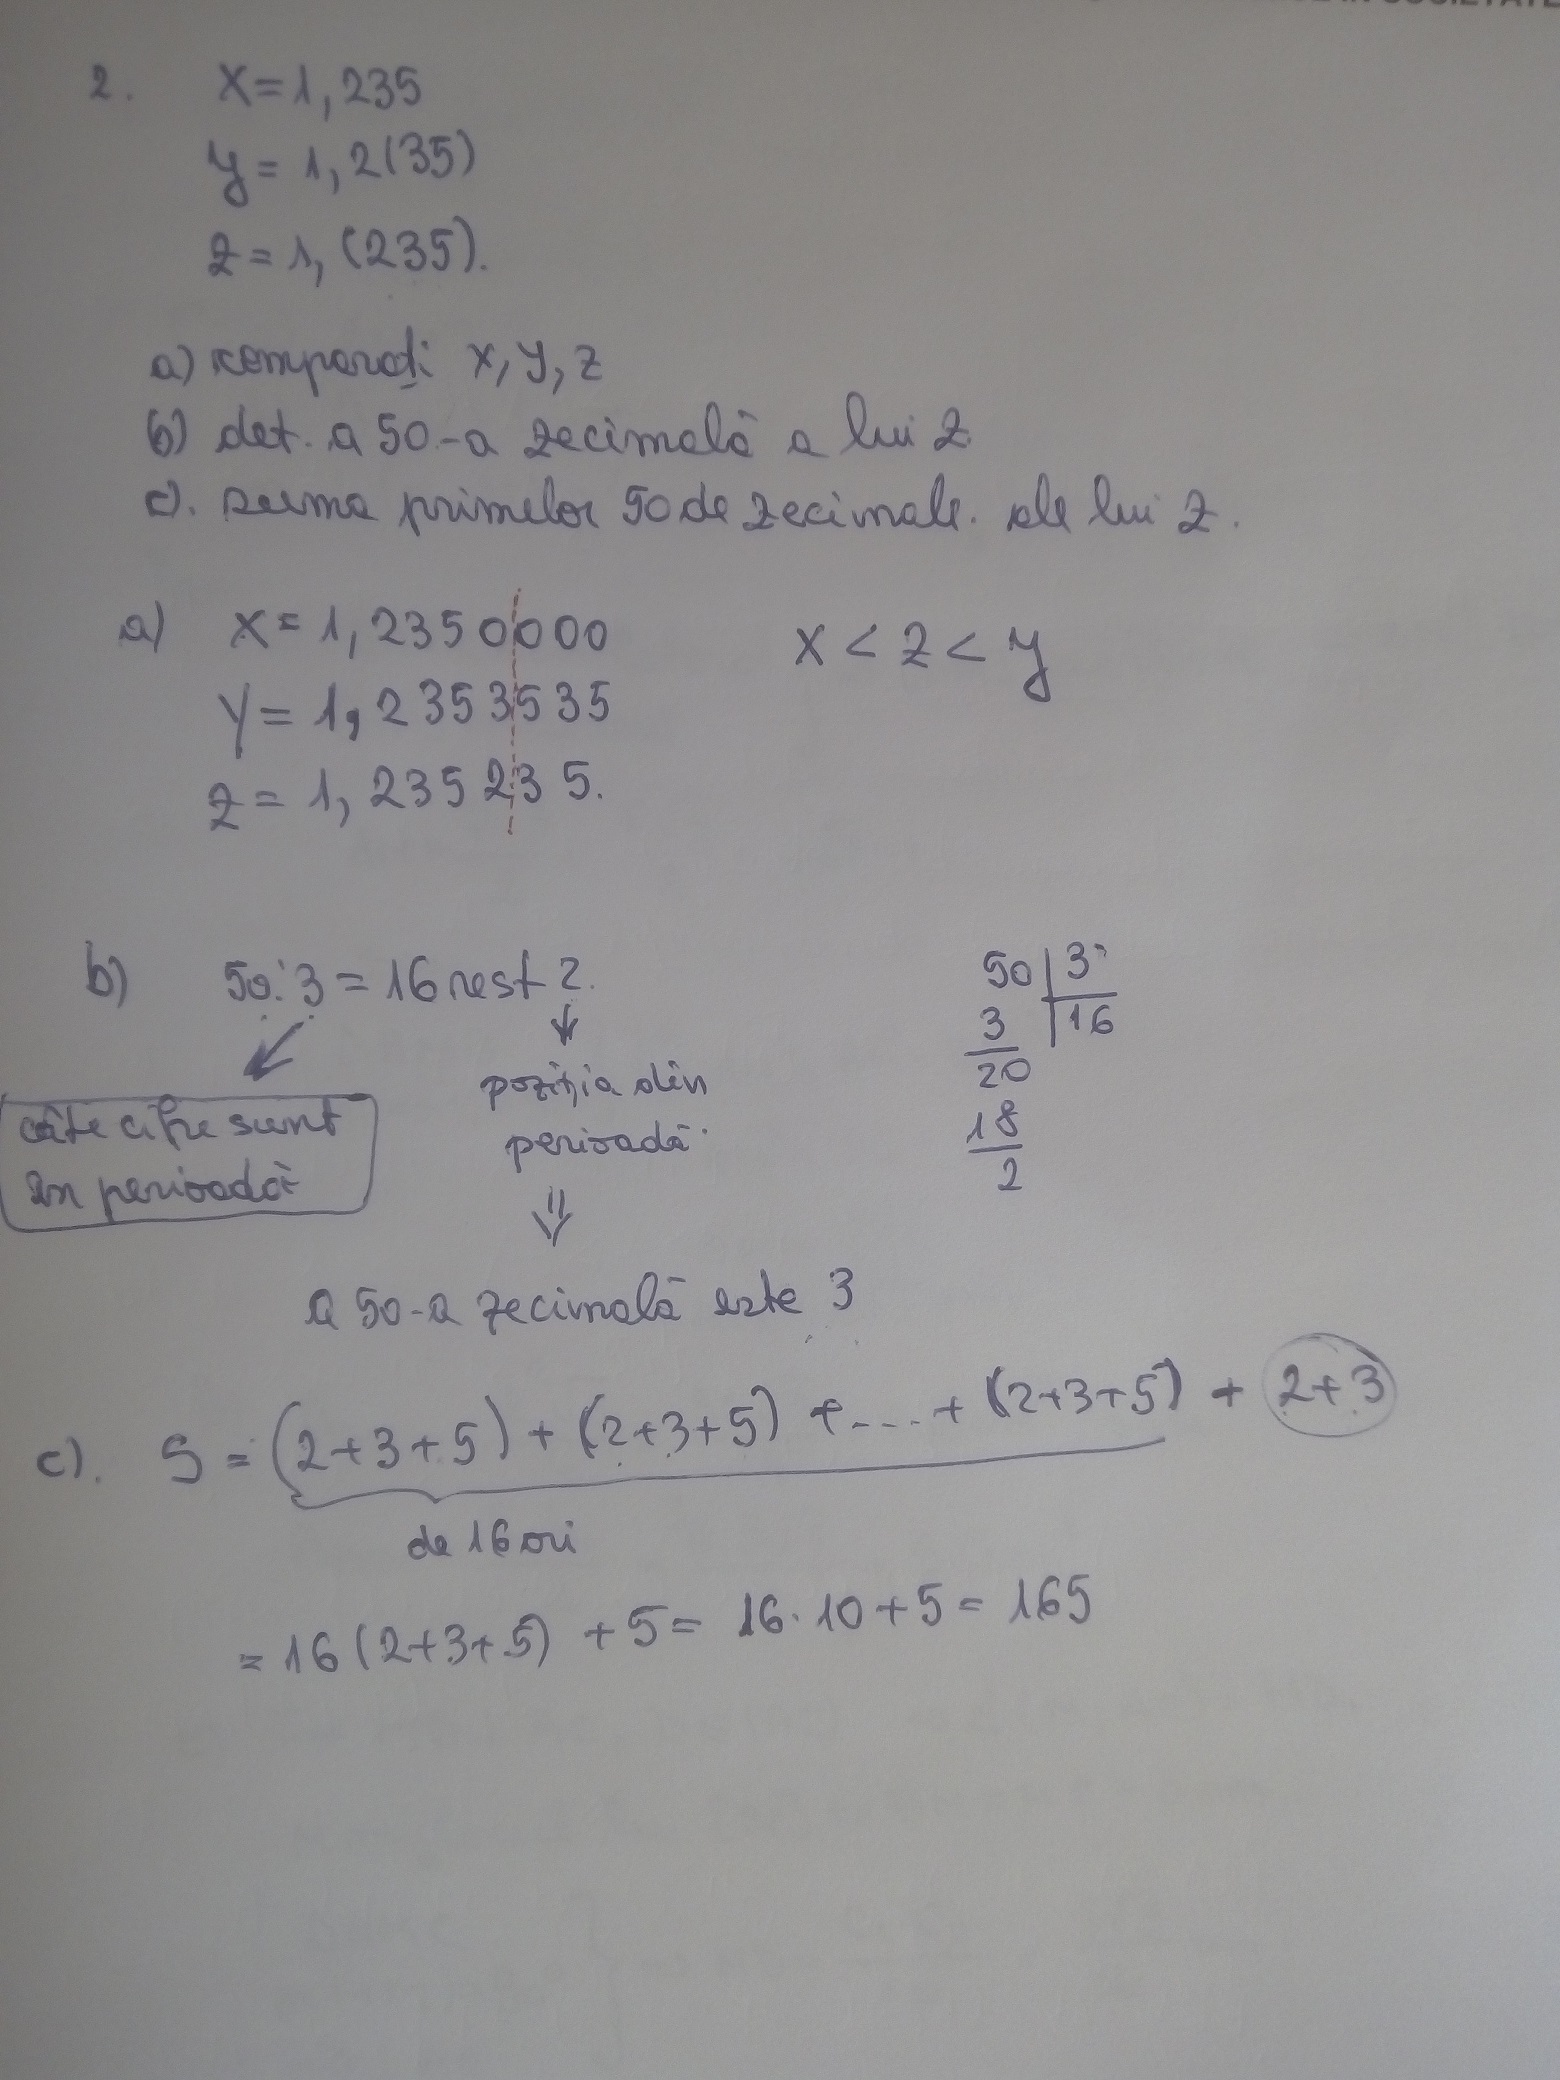 2. x = 1,235
y = 1,2(35)
z = 1,(235).
a) comparați x, y, z
b) det. a 50-a zecimală a lui z
c). suma primelor 50 de zecimale. ale lui z.
a) x = 1,2350000 x < z < y
y = 1,2353535
z = 1,235235.
b) 50:3 = 16 rest 2. 50 | 3
3 | 16
20
18
2
câte cifre sunt
în perioadă
poziția din
perioadă.
⇓
a 50-a zecimală este 3
c). S = (2+3+5) + (2+3+5) + .... + (2+3+5) + 2+3
de 16 ori
= 16 (2+3+5) + 5 = 16·10 + 5 = 165